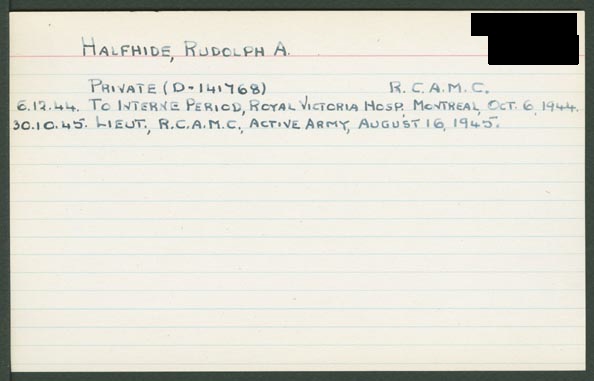 HALFHIDE, RUDOLPH A.
PRIVATE (D-141768) R.C.A.M.C.
6.12.44. TO INTERNE PERIOD, ROYAL VICTORIA HOSP. MONTREAL, OCT. 6, 1944.
30.10.45. LIEUT., R.C.A.M.C., ACTIVE ARMY, AUGUST 16, 1945.